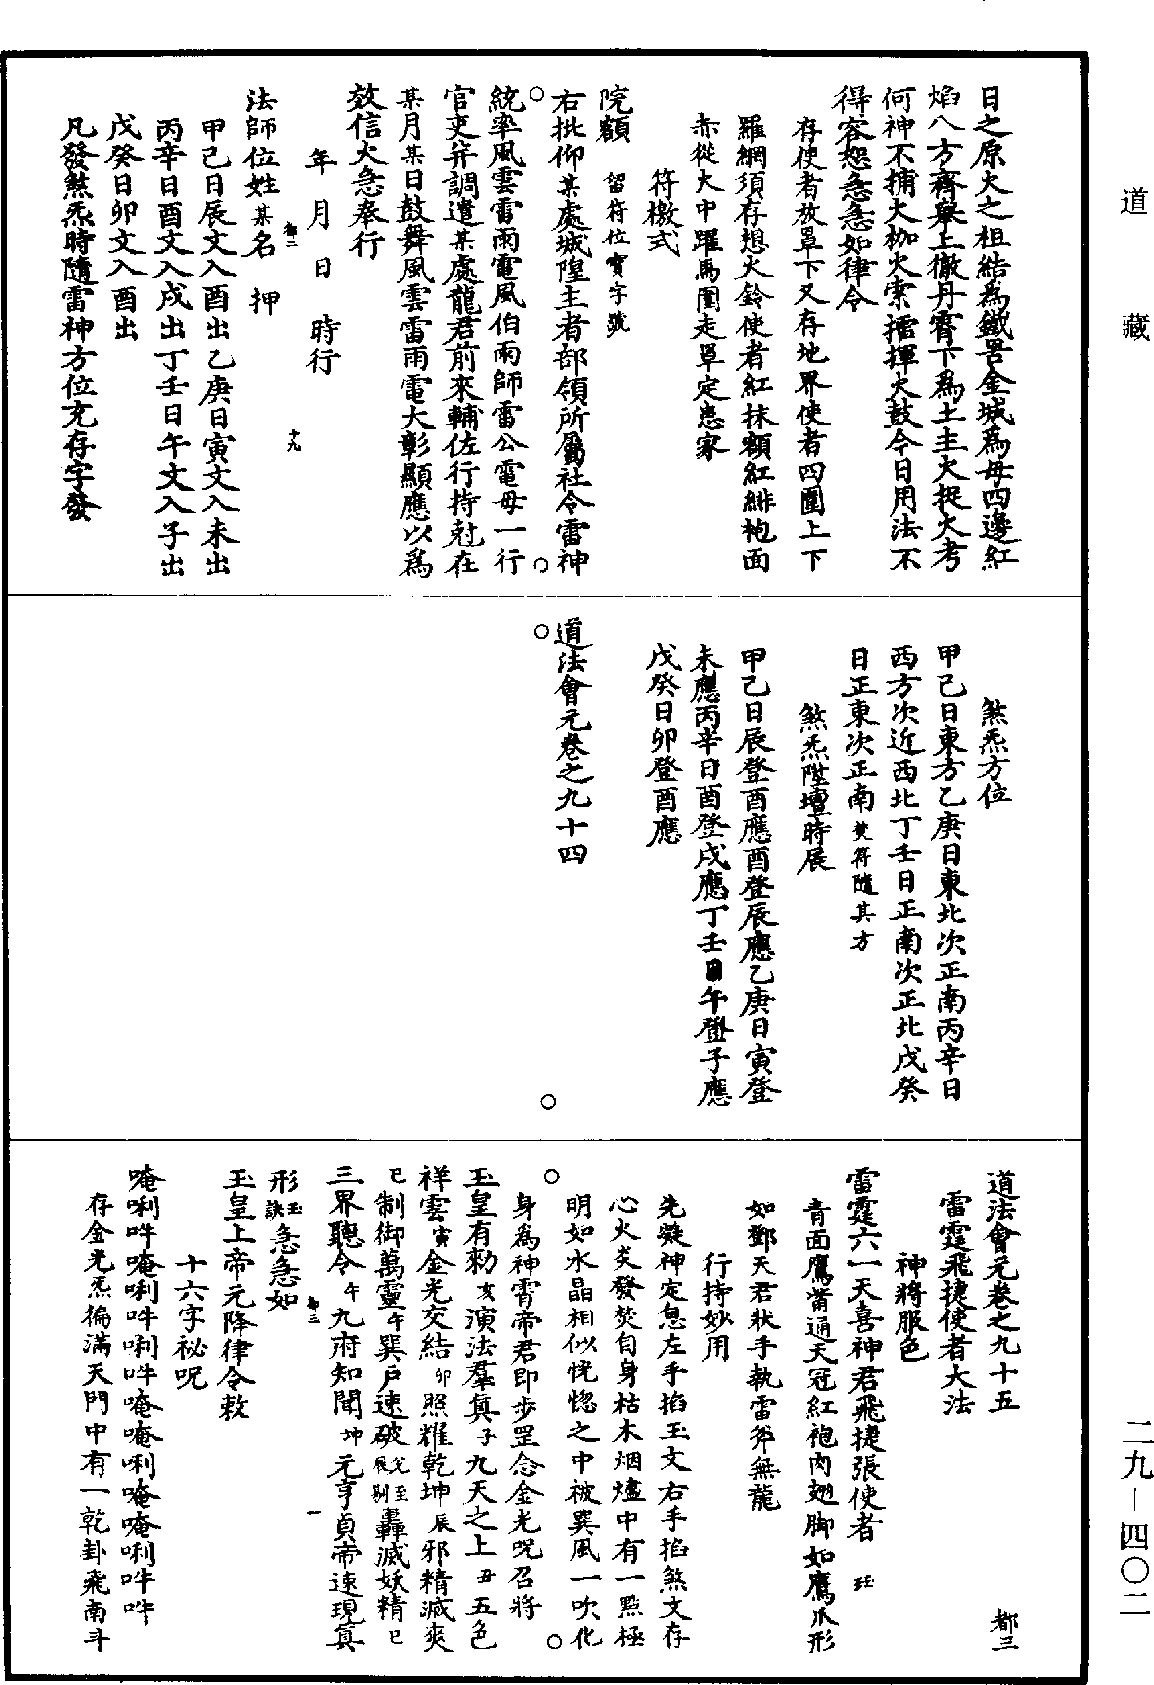 道藏
日之原火之祖結爲鐵罟金城爲母四邊紅
焰八方齊舉上徹丹霄下爲土主火捉火考
何神不捕火枷火索擂揮火鼓今日用法不
得容恕急急如律令
存使者放罩下又存地界使者四圍上下
羅網須存想火鈴使者紅抹額紅緋袍面
赤從火中躍馬圍走罩定患家
符檄式
院額 留符位寶字號
右批仰某處城隍主者部領所屬社令雷神
統率風雲雷雨電風伯雨師雷公電母一行
官吏并調遣某處龍君前來輔佐行持尅在
某月某日鼓舞風雲雷雨電大彰顯應以爲
效信火急奉行
年 月 日 時行
法師位姓某名 押
都二 十九
甲己日辰文入酉出乙庚日寅文入未出
丙辛日酉文入戌出丁壬日午文入子出
戊癸日卯文入酉出
凡發煞炁時隨雷神方位充存字發
煞炁方位
甲己日東方乙庚日東北次正南丙辛日
西方次近西北丁壬日正南次正北戊癸
日正東次正南焚符隨其方
煞炁陞壇時展
甲己日辰登酉應酉登辰應乙庚日寅登
未應丙辛日酉登戌應丁壬日午登子應
戊癸日卯登酉應
道法會元卷之九十四
道法會元卷之九十五 都三
雷霆飛捷使者大法
神將服色
雷霆六一天喜神君飛捷張使者 珏
青面鷹觜通天冠紅袍肉翅脚如鷹爪形
如鄧天君狀手執雷斧無龍
行持妙用
先凝神定息左手掐玉文右手掐煞文存
心火炎發焚自身枯木烟爐中有一點極
明如水晶相似恍惚之中被巽風一吹化
身爲神霄帝君印步罡念金光呪召將
玉皇有勑亥演法羣真子九天之上丑五色
祥雲寅金光交結卯照耀乾坤辰邪精滅爽
巳制御萬靈午巽戶速破轟滅妖精巳
三界聽令午九府知聞坤元亨貞帝速現真
形玉訣急急如
都三 一
玉皇上帝元降律令敕
十六字祕呪
唵唎吽唵唎吽唎吽唵唵唎唵唵唎吽吽
存金光炁徧滿天門中有一乾卦飛南斗
二九—四〇二